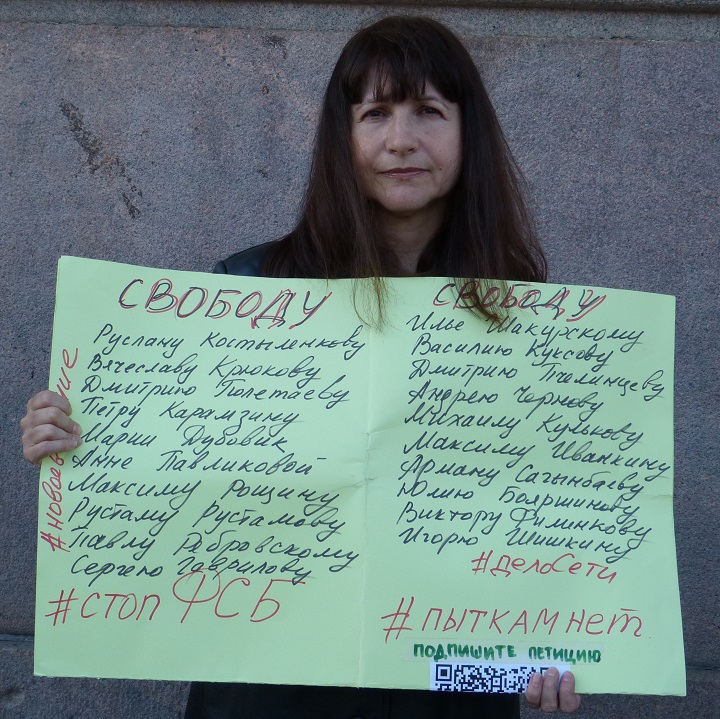 СВОБОДУ
Руслану Костыленкову
Вячеславу Крюкову
Дмитрию Полетаеву
Петру Карамзину
Марии Дубовик
Анне Павликовой
Максиму Рощину
Рустаму Рустамову
Павлу Ребровскому
Сергею Гаврилову
#СТОП ФСБ
СВОБОДУ
Илье Шакурскому
Василию Куксову
Дмитрию Пчелинцеву
Андрею Чернову
Михаилу Кулькову
Максиму Иванкину
Арману Сагынбаеву
Юлию Бояршинову
Виктору Филинкову
Игорю Шишкину
#делоСети
#пыткамнет
ПОДПИШИТЕ ПЕТИЦИЮ